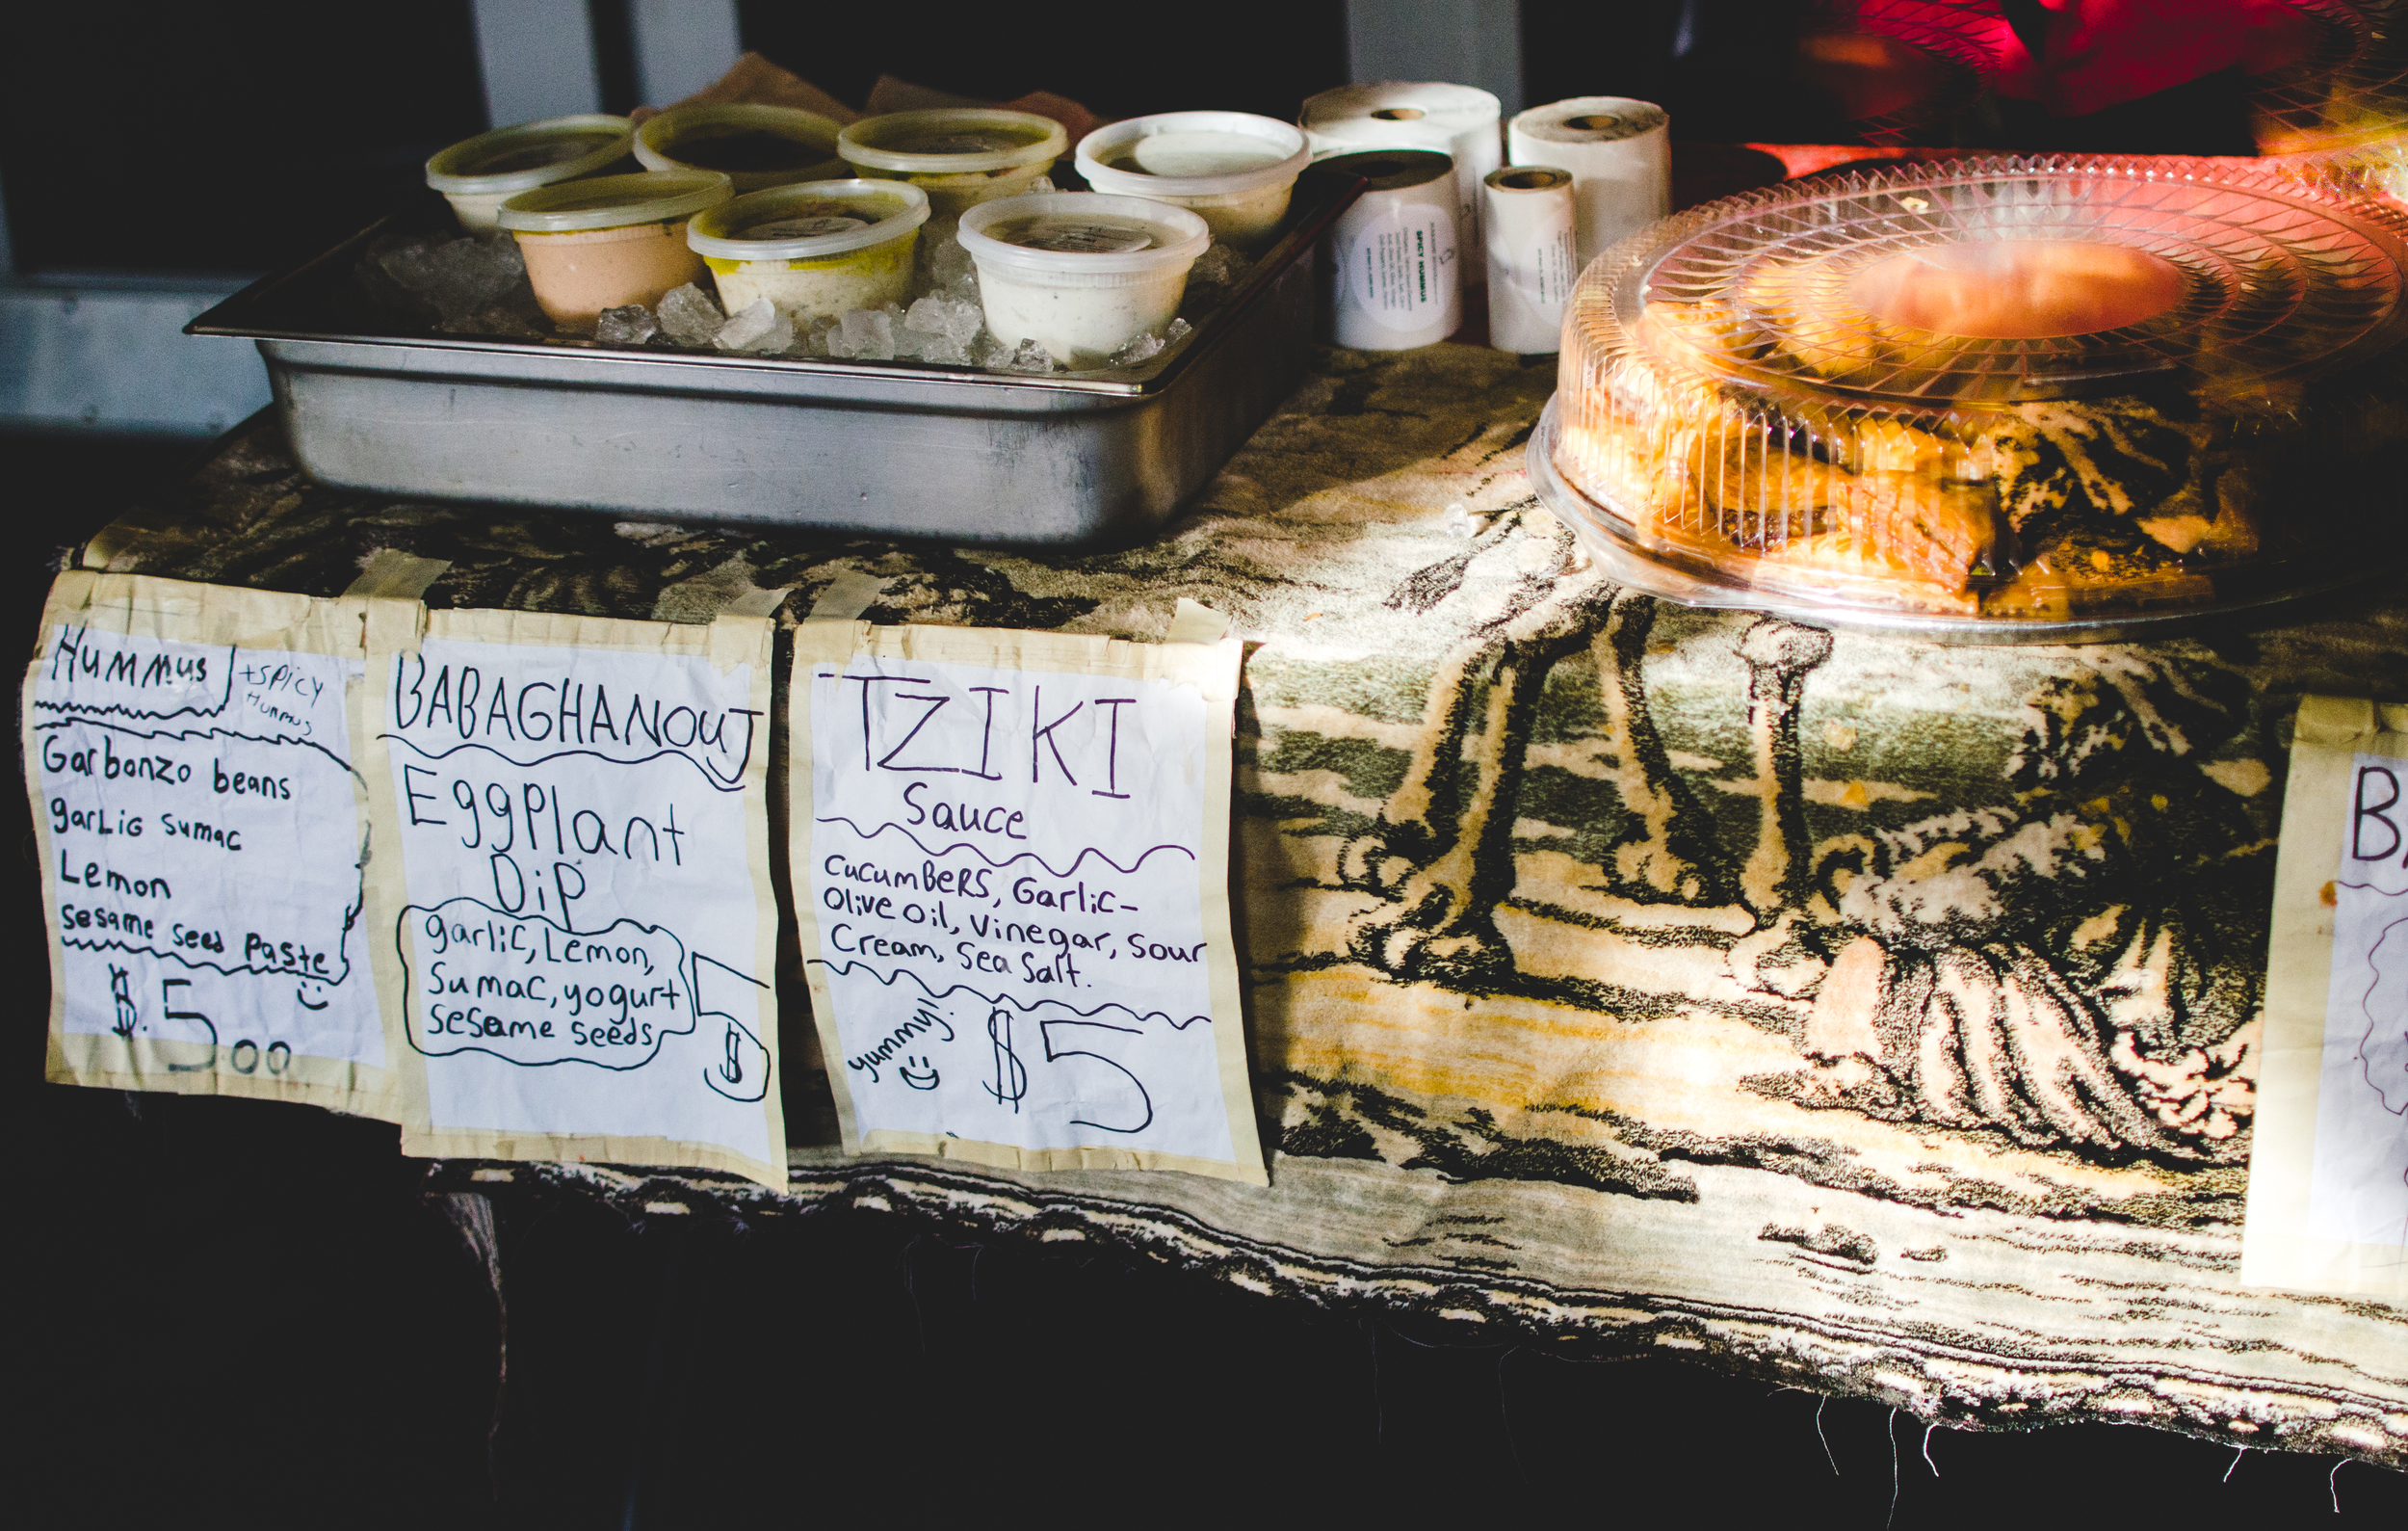 Hummus
+Spicy
Hummus
Garbonzo beans
garlic Sumac
Lemon
sesame seed Paste
$.5.00
BABAGHANOUJ
EggPlant
Dip
garlic, Lemon,
Sumac, yogurt
sesame seeds
5
$
TZIKI
Sauce
CucumBeRS, Garlic-
Olive Oil, Vinegar, Sour
Cream, Sea Salt.
yummy!
$5
SPICY HUMMUS